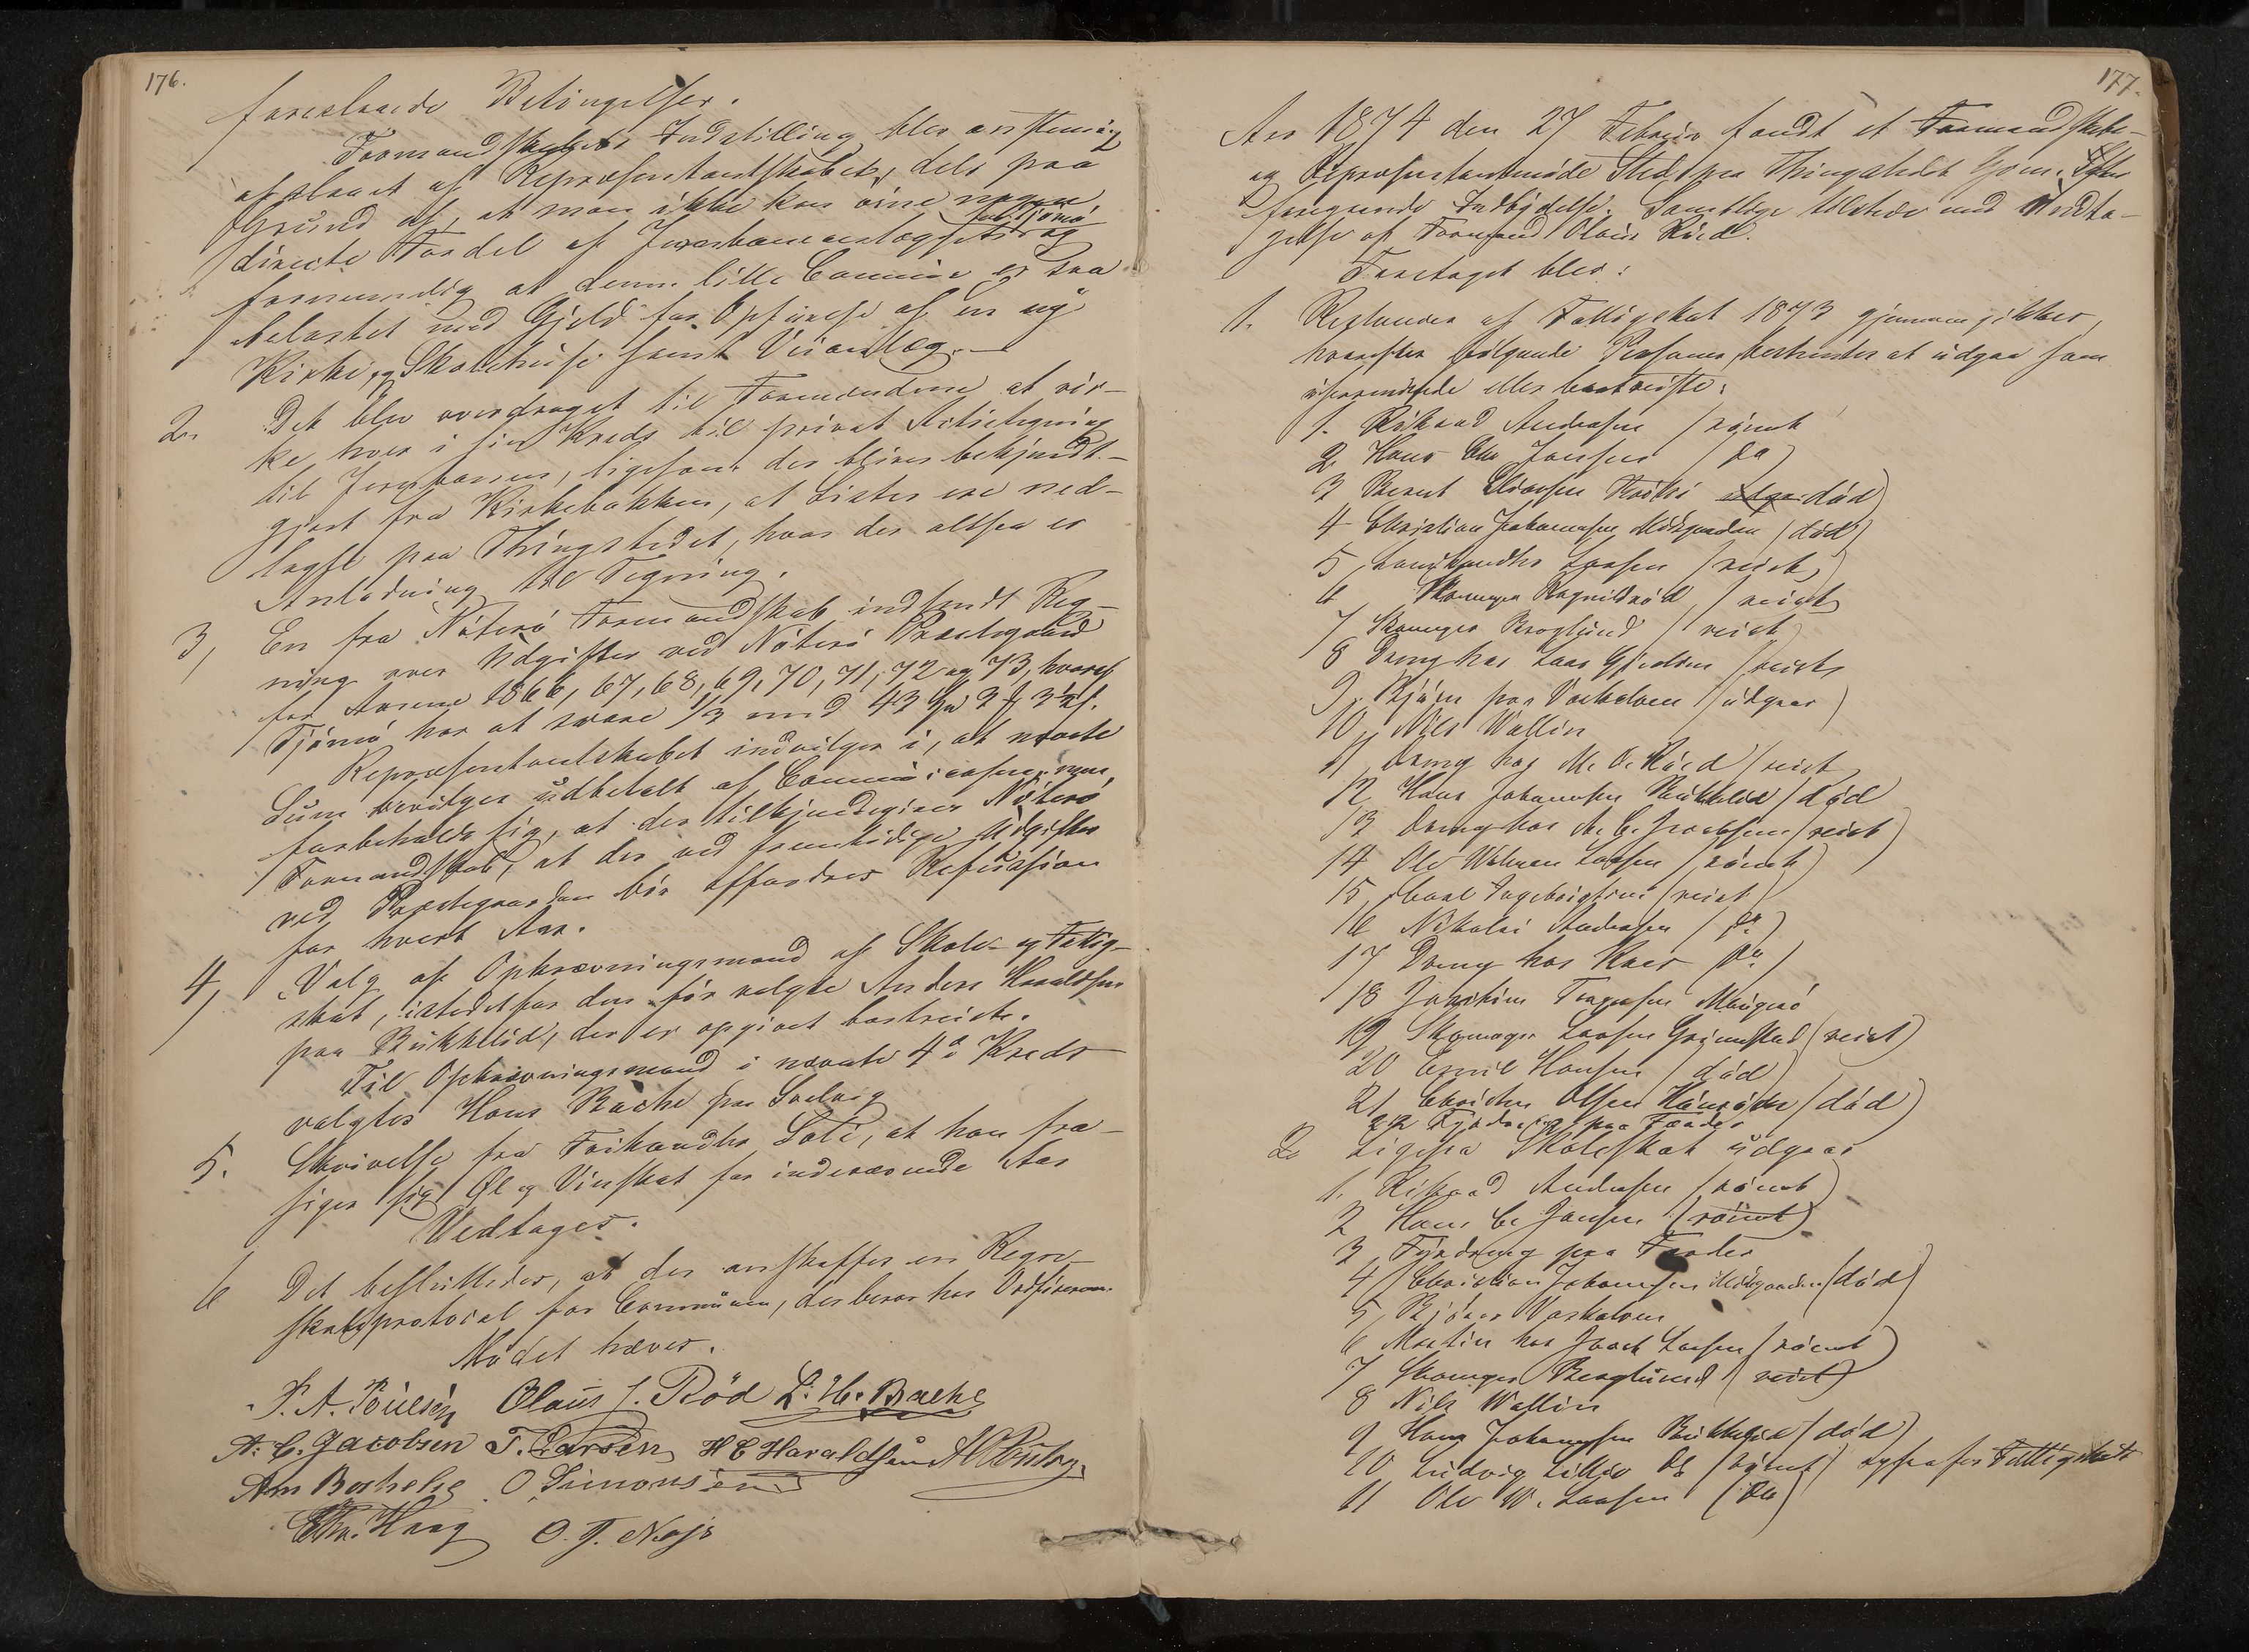 176.
foreslaaede Betingelser.
Formandskabets Indstilling blev eenstemmig
afslaaet af Repræsentantskabet, dels paa
Grund af, at man ikke kan øine nogen
directe Fordel af Jernbaneanlægget for Tjømø og
fornemmelig at denne lille Commune er saa
belastet med Gjeld for Opførelse af en ny
Kirke, og Skolehuse samt Veianlæg.
2. Det blev overdraget til Formændene at vir-
ke hver i sin Kreds til privat Actietegning
til Jernbanen, ligesom der bliver bekjendt-
gjort fra Kirkebakken, at Lister ere ned-
lagte paa Thingstedet, hvor der altsaa er
Anledning til Tegning.
3, En fra Nøterø Formandskab indsendt Reg-
ning over Udgifter ved Nøterø Præstegaard
for Aarene 1866, 67, 68, 69, 70, 71, 72 og 73, hvoraf
Tjømø har at svare 1/3 med 43 Spd 2 3
Repræsentantskabet indvilger i, at nævnte
Sum bevilges udbetalt af Communecassen, men
forbeholder sig, at der tilkjendegives Nøterø
Formandskab, at der ved fremtidige Udgifter
ved Præstegaarden bør affordres Refusion
for hvert Aar.
4, Valg af Opkrævningsmand af Skole- og Fattig-
skat, istedetfor den før valgte Anders Haraldsen
paa Bukkelid, der er opgivet bortreist.
Til Opkrævningsmand i nævnte 4de Kreds
valgtes Hans Bache paa Solvig
5. Skrivelse fra Frihandler Sole, at han fra-
siger sig Øl og Vinskat for indeværende Aar
Vedtages.
6 Det besluttedes, at der anskaffes en Regn-
skabsprotocol for Communen, der beror hos Ordføreren.
Mødet hæves.
P. A. Poulsen Olaus J. Röd L. H. Bache
A. C. Jacobsen T. Larsen H C Haraldsen
O. Simonsen
Haag O. T. Mojr
177.
Aar 1874 den 27 Februar fandt et Formandskabs-
og Repræsentantmøde Sted paa Thingstedet Efter
foregaaende Indbydelse. Samtlige tilstede med Undta-
gelse af Formand Olaus Röed.
Foretaget blev:
1. Restancer af Fattigskat 1873 gjennemgikkes,
hvorefter følgende Personer bestemtes at udgaa som
uformuende eller bortreiste:
1. Rikard Andersen (römt
2 Hans Chr Jansen (do)
3 Bernt død)
4 Christian Johannesen Midgaarden (død)
5, Landhandler Larsen (reist)
6 Skomager Ragnildröd (reist
7 Skomager Berglund (reist)
8 Dreng hos Lars (reist
9, Bjørn paa Vaskalven (udgaar)
10, Nils Wallin
11 Dreng hos M. O. Röed (reist
12 Hans Johannesen Bukkelid (død
13 Dreng hos A. C. Jacobsen (reist)
14 Ole Wilman Larsen (rømt)
15, Carl Ingebrigtsen (reist)
16 Nikolai Andersen (do)
17 Dreng hos Kaer (do)
18 Joachim Torgersen
19 Skomager Larsen Grimestad (reist)
20 Emil Hansen (død)
21 Christen Olsen (død)
22 Fyrdreng paa Færder
2. Ligesaa Skoleskat udgaar
1. Rikard Andersen (rømt)
2 Hans Chr Jansen (rømt)
3 Fyrdreng paa Færder
4 Christian Johannesen Midgaarden (død)
5, Bjørn Vaskalven
6 Martin hos Jacob Larsen (rømt)
7 Skomager Berglund (reist)
8 Nils Wallin
9 Hans Johannesen Bukkelid (død)
10 Ludvig (rømt) ligesaa for Fattigskat
11 Ole W. Larsen (do)